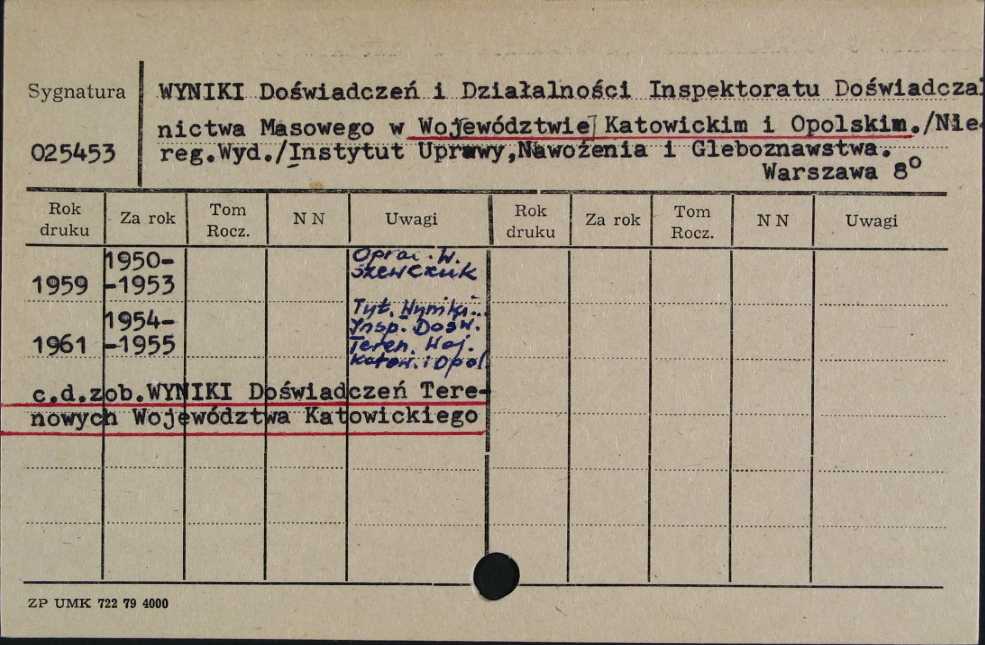 Sygnatura
025453
WYNIKI Doświadczeń i Działalności Inspektoratu Doświadczal
nictwa Masowego w Województwie Katowickim i Opolskim./Nie-
reg.Wyd./Instytut Uprawy,Nawożenia i Gleboznawstwa.
Warszawa 8°
Rok druku Za rok Tom Rocz. N N Uwagi Rok druku Za rok Tom Rocz. N N Uwagi
1959 1950-
-1953
Oprac. W.
Szewczuk
1961 1954-
-1955
Tyt. Wyniki...
Insp. Dośw.
Teren. Woj.
Katow. i Opol.
c.d.zob.WYNIKI Doświadczeń Tere-
nowych Województwa Katowickiego
ZP UMK 722 79 4000